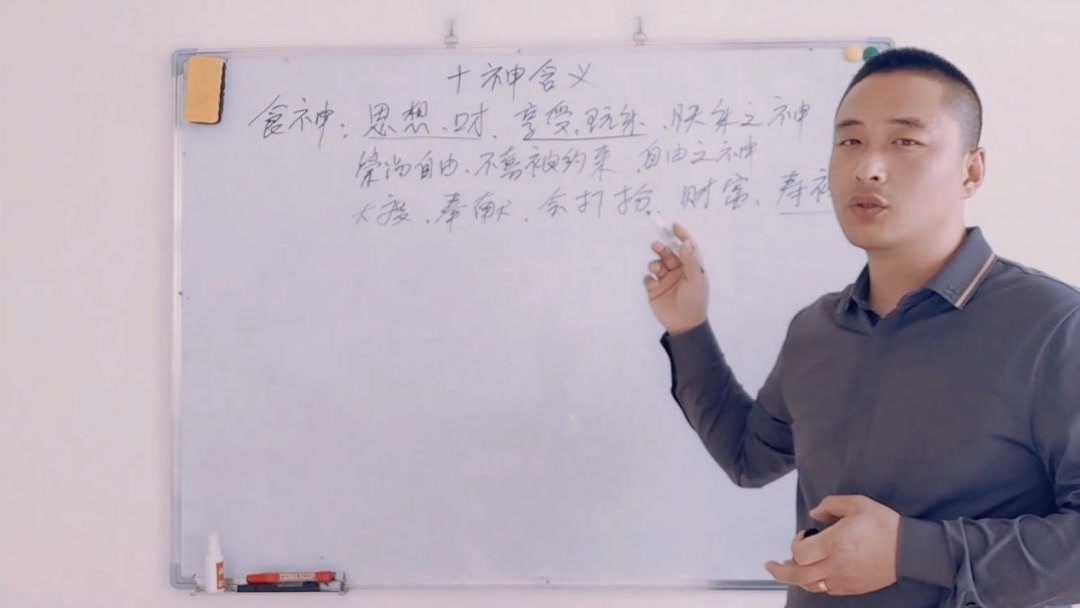 十神含义
食神：思想、口才、享受、玩乐、快乐之神
崇尚自由、不喜被约束、自由之神
大度、奉献、会打扮、财富、寿